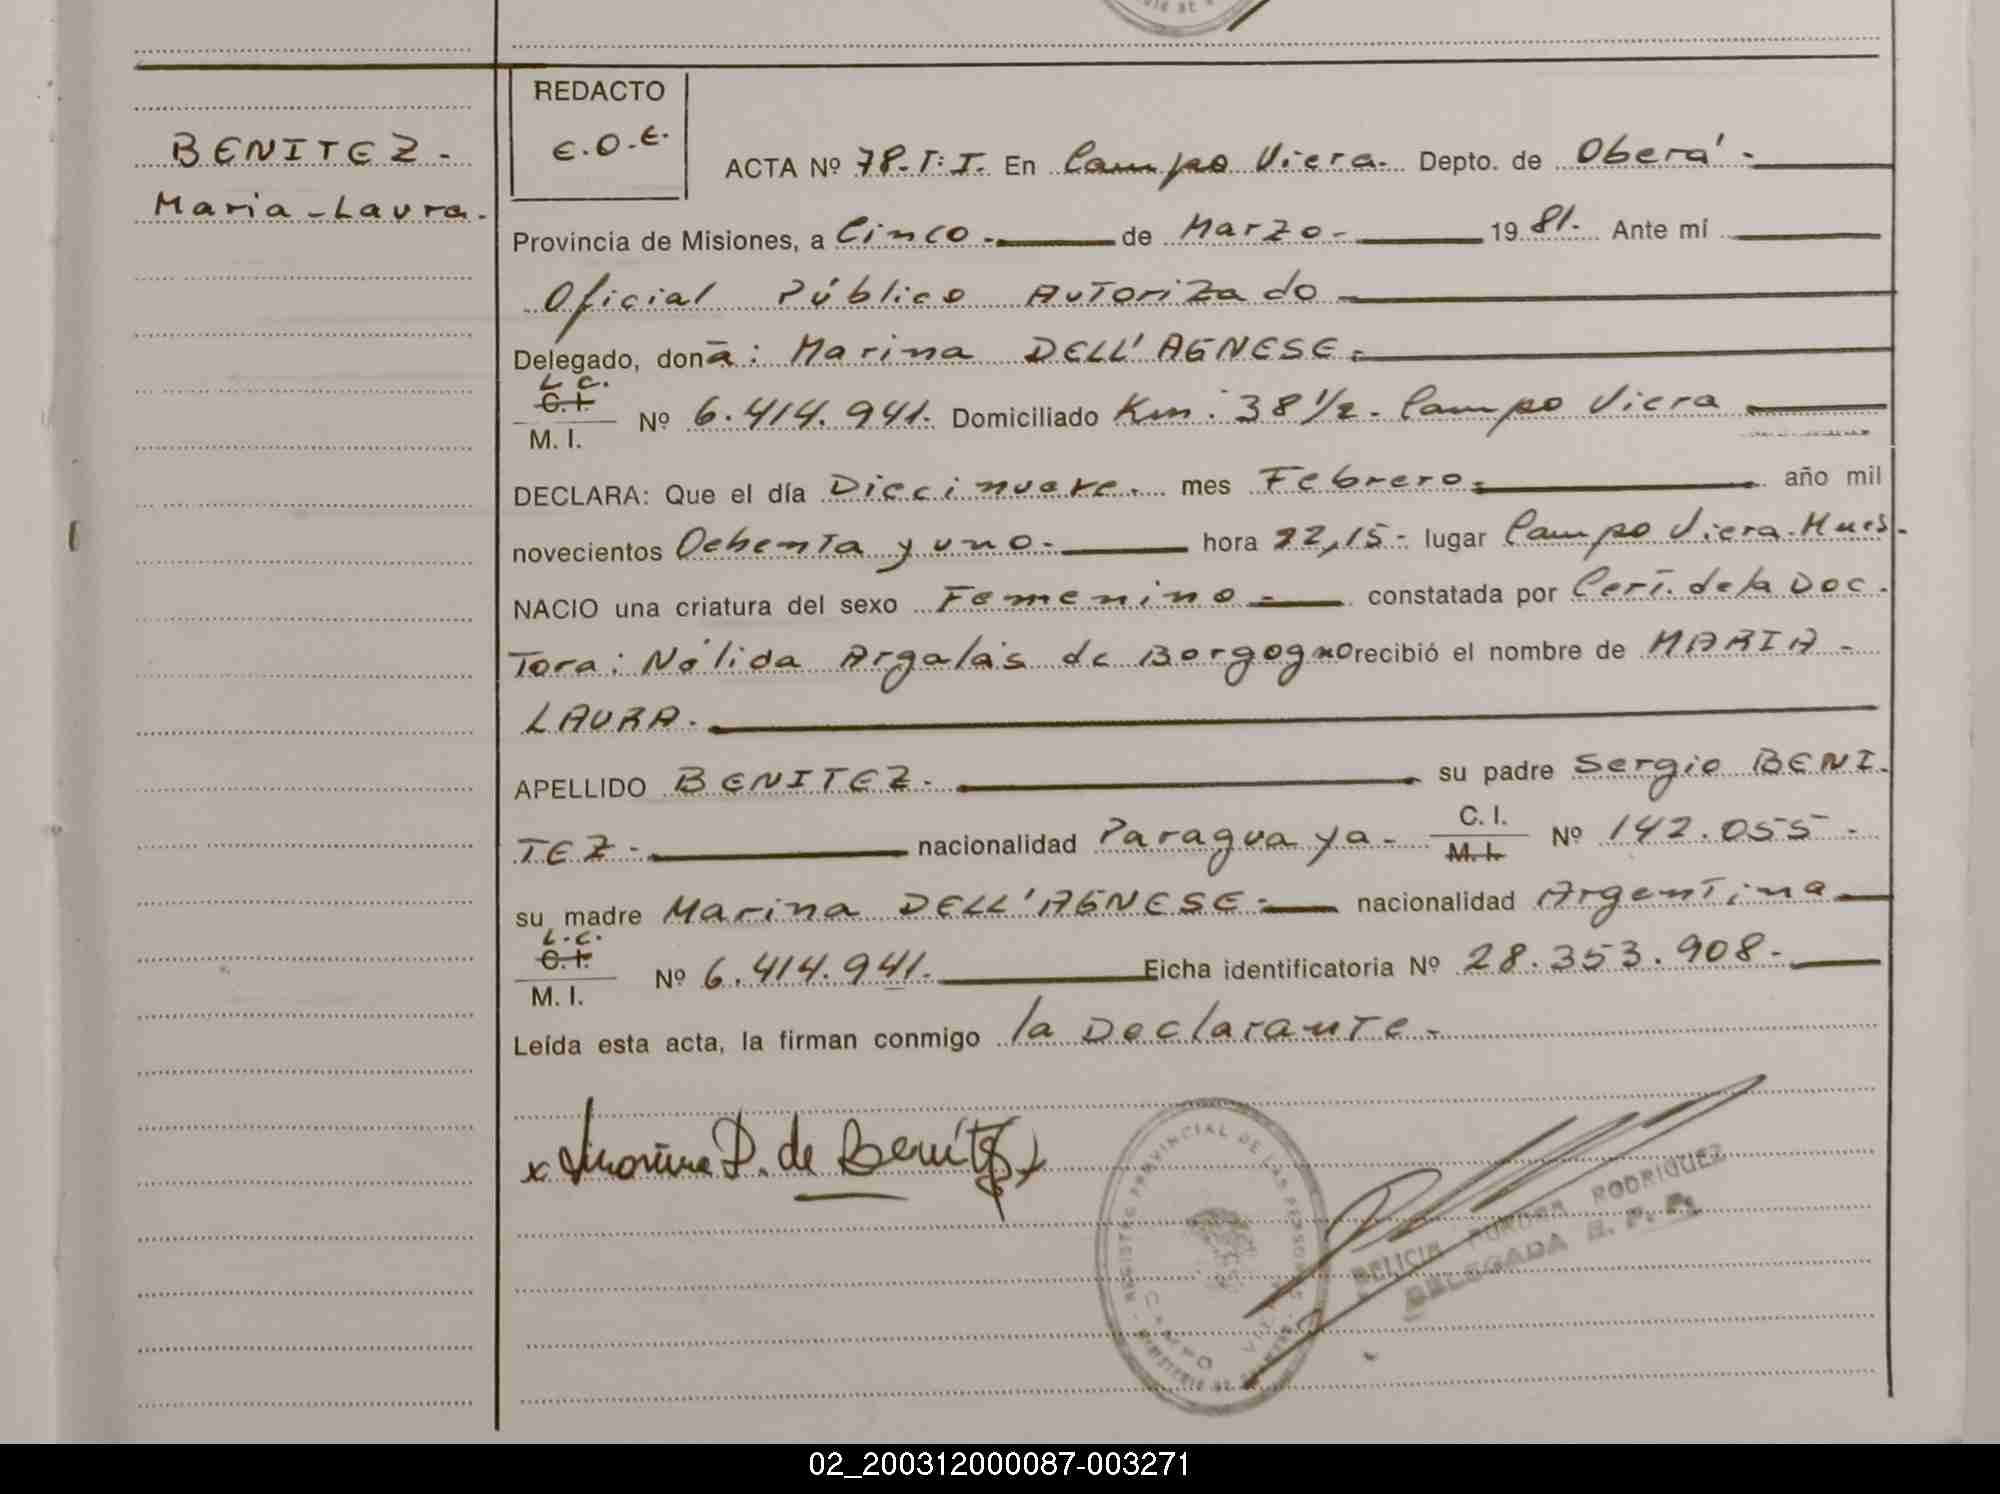 REDACTO
E.O.E.
BENITEZ.-
Maria-Laura.-
ACTA Nº 78.T:I. En Campo Viera.- Depto. de Oberá.-
Provincia de Misiones, a Cinco.- de Marzo.- 19 81.- Ante mí
Oficial Público Autorizado
Delegado, donã: Marina DELL'AGNESE.-
L.C.
C.I.
M. I.
Nº 6.414.941.- Domiciliado Km: 38 1/2.- Campo Viera
DECLARA: Que el día Diecinueve.- mes Febrero.- año mil
novecientos Ochenta y uno.- hora 22,15.- lugar Campo Viera.Mnes.-
NACIO una criatura del sexo Femenino.- constatada por Cert. de la Doc.
Tora: Nélida Argalás de Borgogno recibió el nombre de MARIA -
LAURA.-
APELLIDO BENITEZ.- su padre Sergio BENI.
TEZ.- nacionalidad Paraguaya.- C. I.
M. I. Nº 142.055.-
su madre Marina DELL'AGNESE.- nacionalidad Argentina
L.C.
C.I.
M. I.
Nº 6.414.941.- Ficha identificatoria Nº 28.353.908.-
Leída esta acta, la firman conmigo la Declarante.-
x Marina D. de Benítez
REGISTRO PROVINCIAL DE LAS PERSONAS
CAMPO VIERA
MINISTERIO DE GOBIERNO
RODRIGUEZ
DELEGADA R. P. P.
02_200312000087-003271